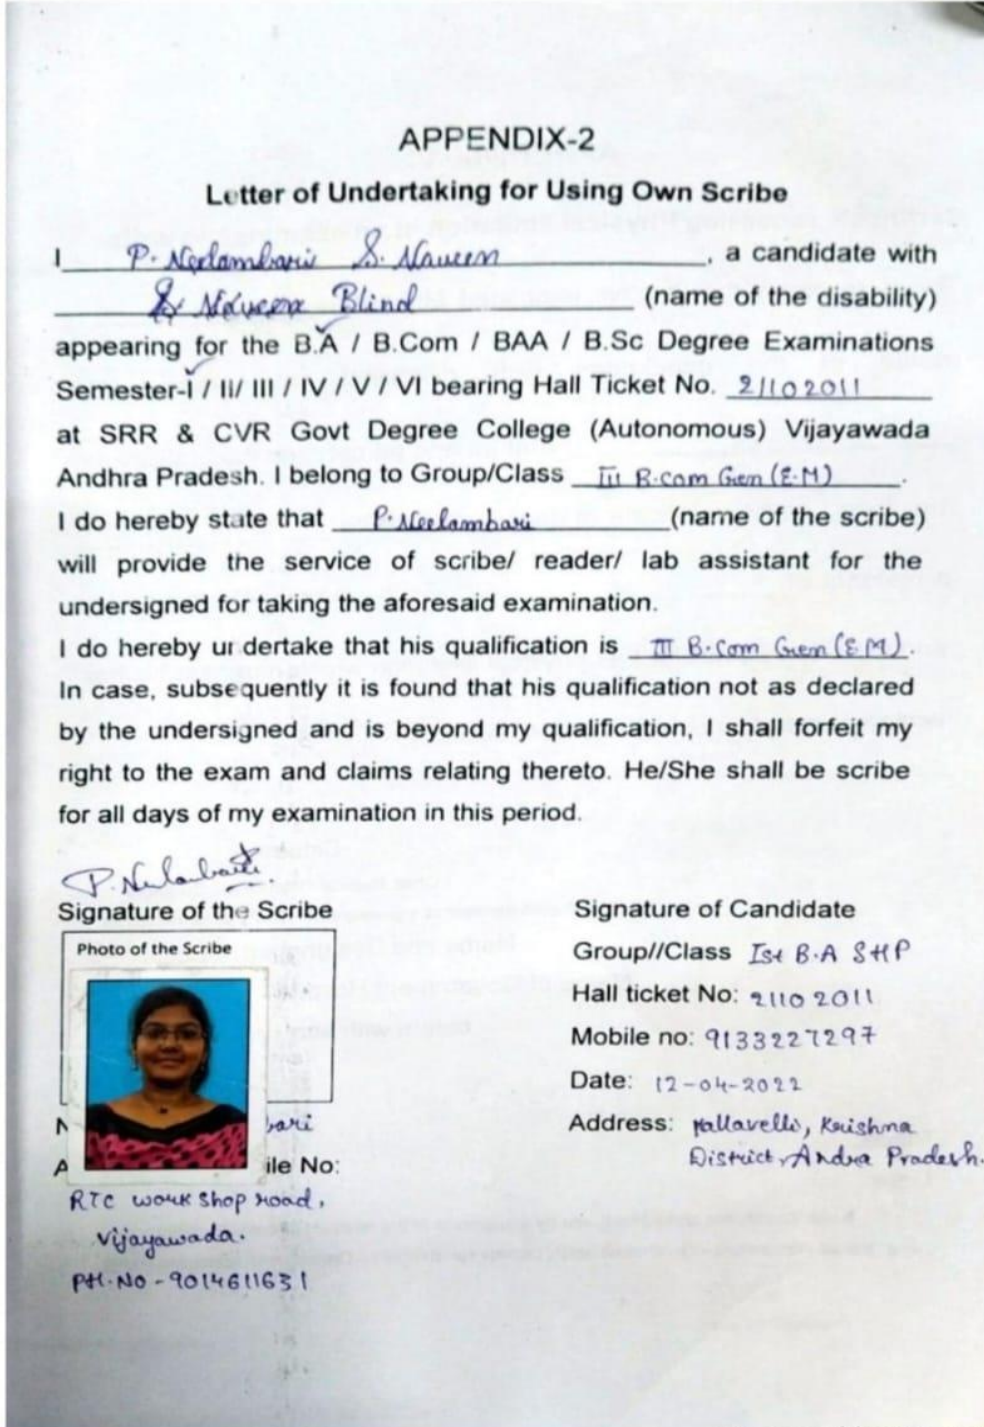 APPENDIX-2
Letter of Undertaking for Using Own Scribe
I P. Neelambari S. Naveen, a candidate with
S. Naveen Blind (name of the disability)
appearing for the B.A / B.Com / BAA / B.Sc Degree Examinations
Semester-I / II/ III / IV / V / VI bearing Hall Ticket No. 21102011
at SRR & CVR Govt Degree College (Autonomous) Vijayawada
Andhra Pradesh. I belong to Group/Class III B.com Gen (E.M).
I do hereby state that P. Neelambari (name of the scribe)
will provide the service of scribe/ reader/ lab assistant for the
undersigned for taking the aforesaid examination.
I do hereby undertake that his qualification is III B.Com Gen (E.M).
In case, subsequently it is found that his qualification not as declared
by the undersigned and is beyond my qualification, I shall forfeit my
right to the exam and claims relating thereto. He/She shall be scribe
for all days of my examination in this period.
P. Neelambari
Signature of the Scribe
Photo of the Scribe
N bari
A ile No:
RTC work shop road,
Vijayawada.
PH.NO - 9014611631
Signature of Candidate
Group//Class Ist B.A SHP
Hall ticket No: 2110 2011
Mobile no: 9133227297
Date: 12-04-2022
Address: Mallavelli, Krishna
District, Andra Pradesh.